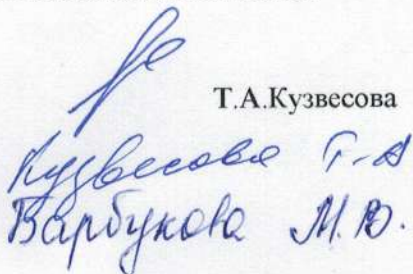 Т.А.Кузвесова
Кузвесова Т.А
Варбукова М.В.